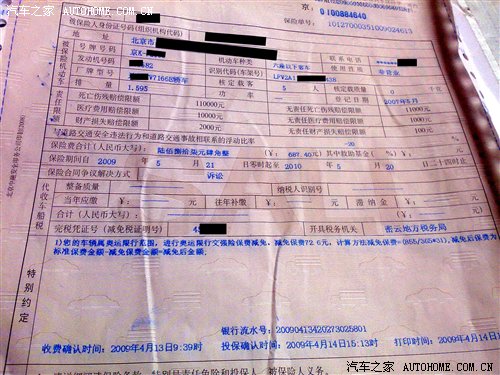 汽车之家 AUTOHOME.COM.CN
京: 0100884640
保险单号: 0101090200351009024613
被保险人身份证号码(组织机构代码)
地 址 北京市
联系电话
号牌号码 京K- 机动车种类 六座以下客车 使用性质 非营业
发动机号码 82 识别代码(车架号) LFV2A1 638
厂牌型号 W7166B轿车 核定载客 5 人 核定载质量 0 千克
排 量 1.595 登记日期 2007年5月
死亡伤残赔偿限额 110000元 无责任死亡伤残赔偿限额 11000元
医疗费用赔偿限额 10000元 无责任医疗费用赔偿限额 1000元
财产损失赔偿限额 2000元 无责任财产损失赔偿限额 100元
与道路交通安全违法行为和道路交通事故相联系的浮动比率 -20
保险费合计(人民币大写): 陆佰捌拾柒元肆角整 (¥: 687.40 元) 其中救助基金( %) ¥: 元
保险期间自 2009 年 5 月 21 日零时起至 2010 年 5 月 20 日二十四时止
保险合同争议解决方式 诉讼
整备质量 纳税人识别号
当年应缴 ¥: 元 往年补缴 ¥: 元 滞纳金 ¥: 元
合计(人民币大写): (¥: 元)
完税凭证号(减免税证明号) 45 开具税务机关 密云地方税务局
1)您的车辆属奥运限行范围, 进行奥运限行交强险保费减免, 减免保费72.6元, 计算方法减免保费=(855/365*31), 减免后保费为
标准保费金额-减免保费金额=减免后金额。
特别约定
银行流水号: 20090413420273025801
收费确认时间: 2009年4月13日9:39时 投保确认时间: 2009年4月14日15:13时 打印时间: 2009年4月14日
汽车之家 AUTOHOME.COM.CN